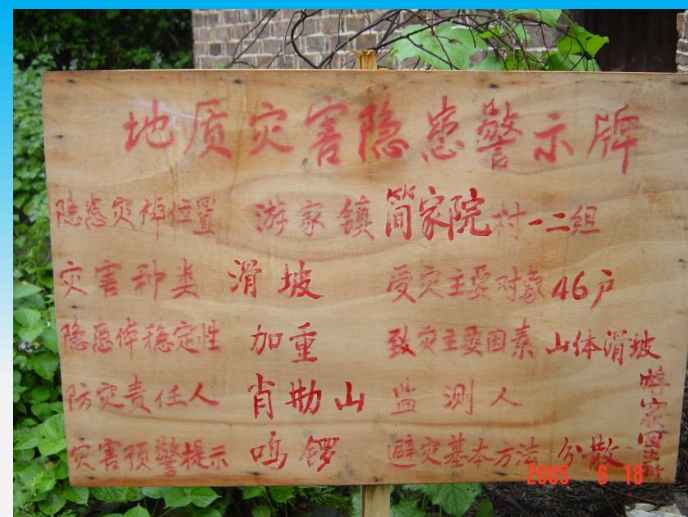 地质灾害隐患警示牌
隐患灾体位置 游家镇 简家院村一二组
灾害种类 滑坡 受灾主要对象 46户
隐患体稳定性 加重 致灾主要因素 山体滑坡
防灾责任人 肖勋山 监测人
灾害预警提示 鸣锣 避灾基本方法 分散
2005 8 18